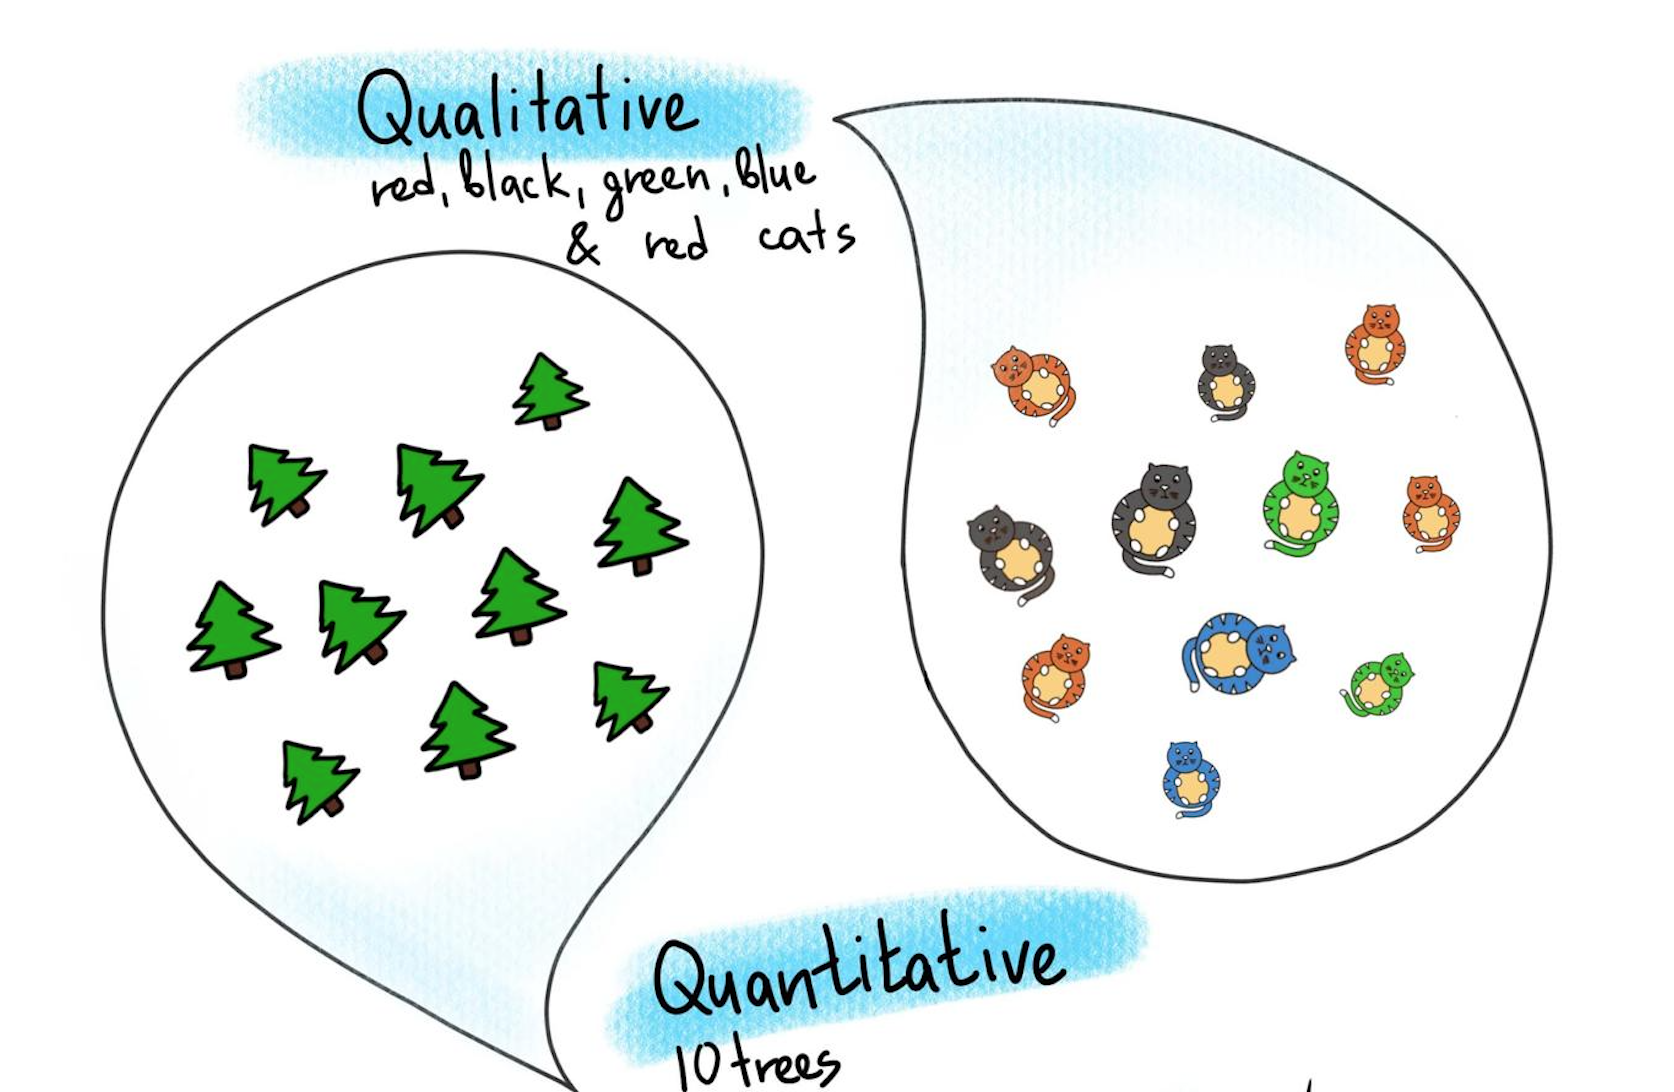 Qualitative
red, black, green, blue
& red cats
Quantitative
10 trees